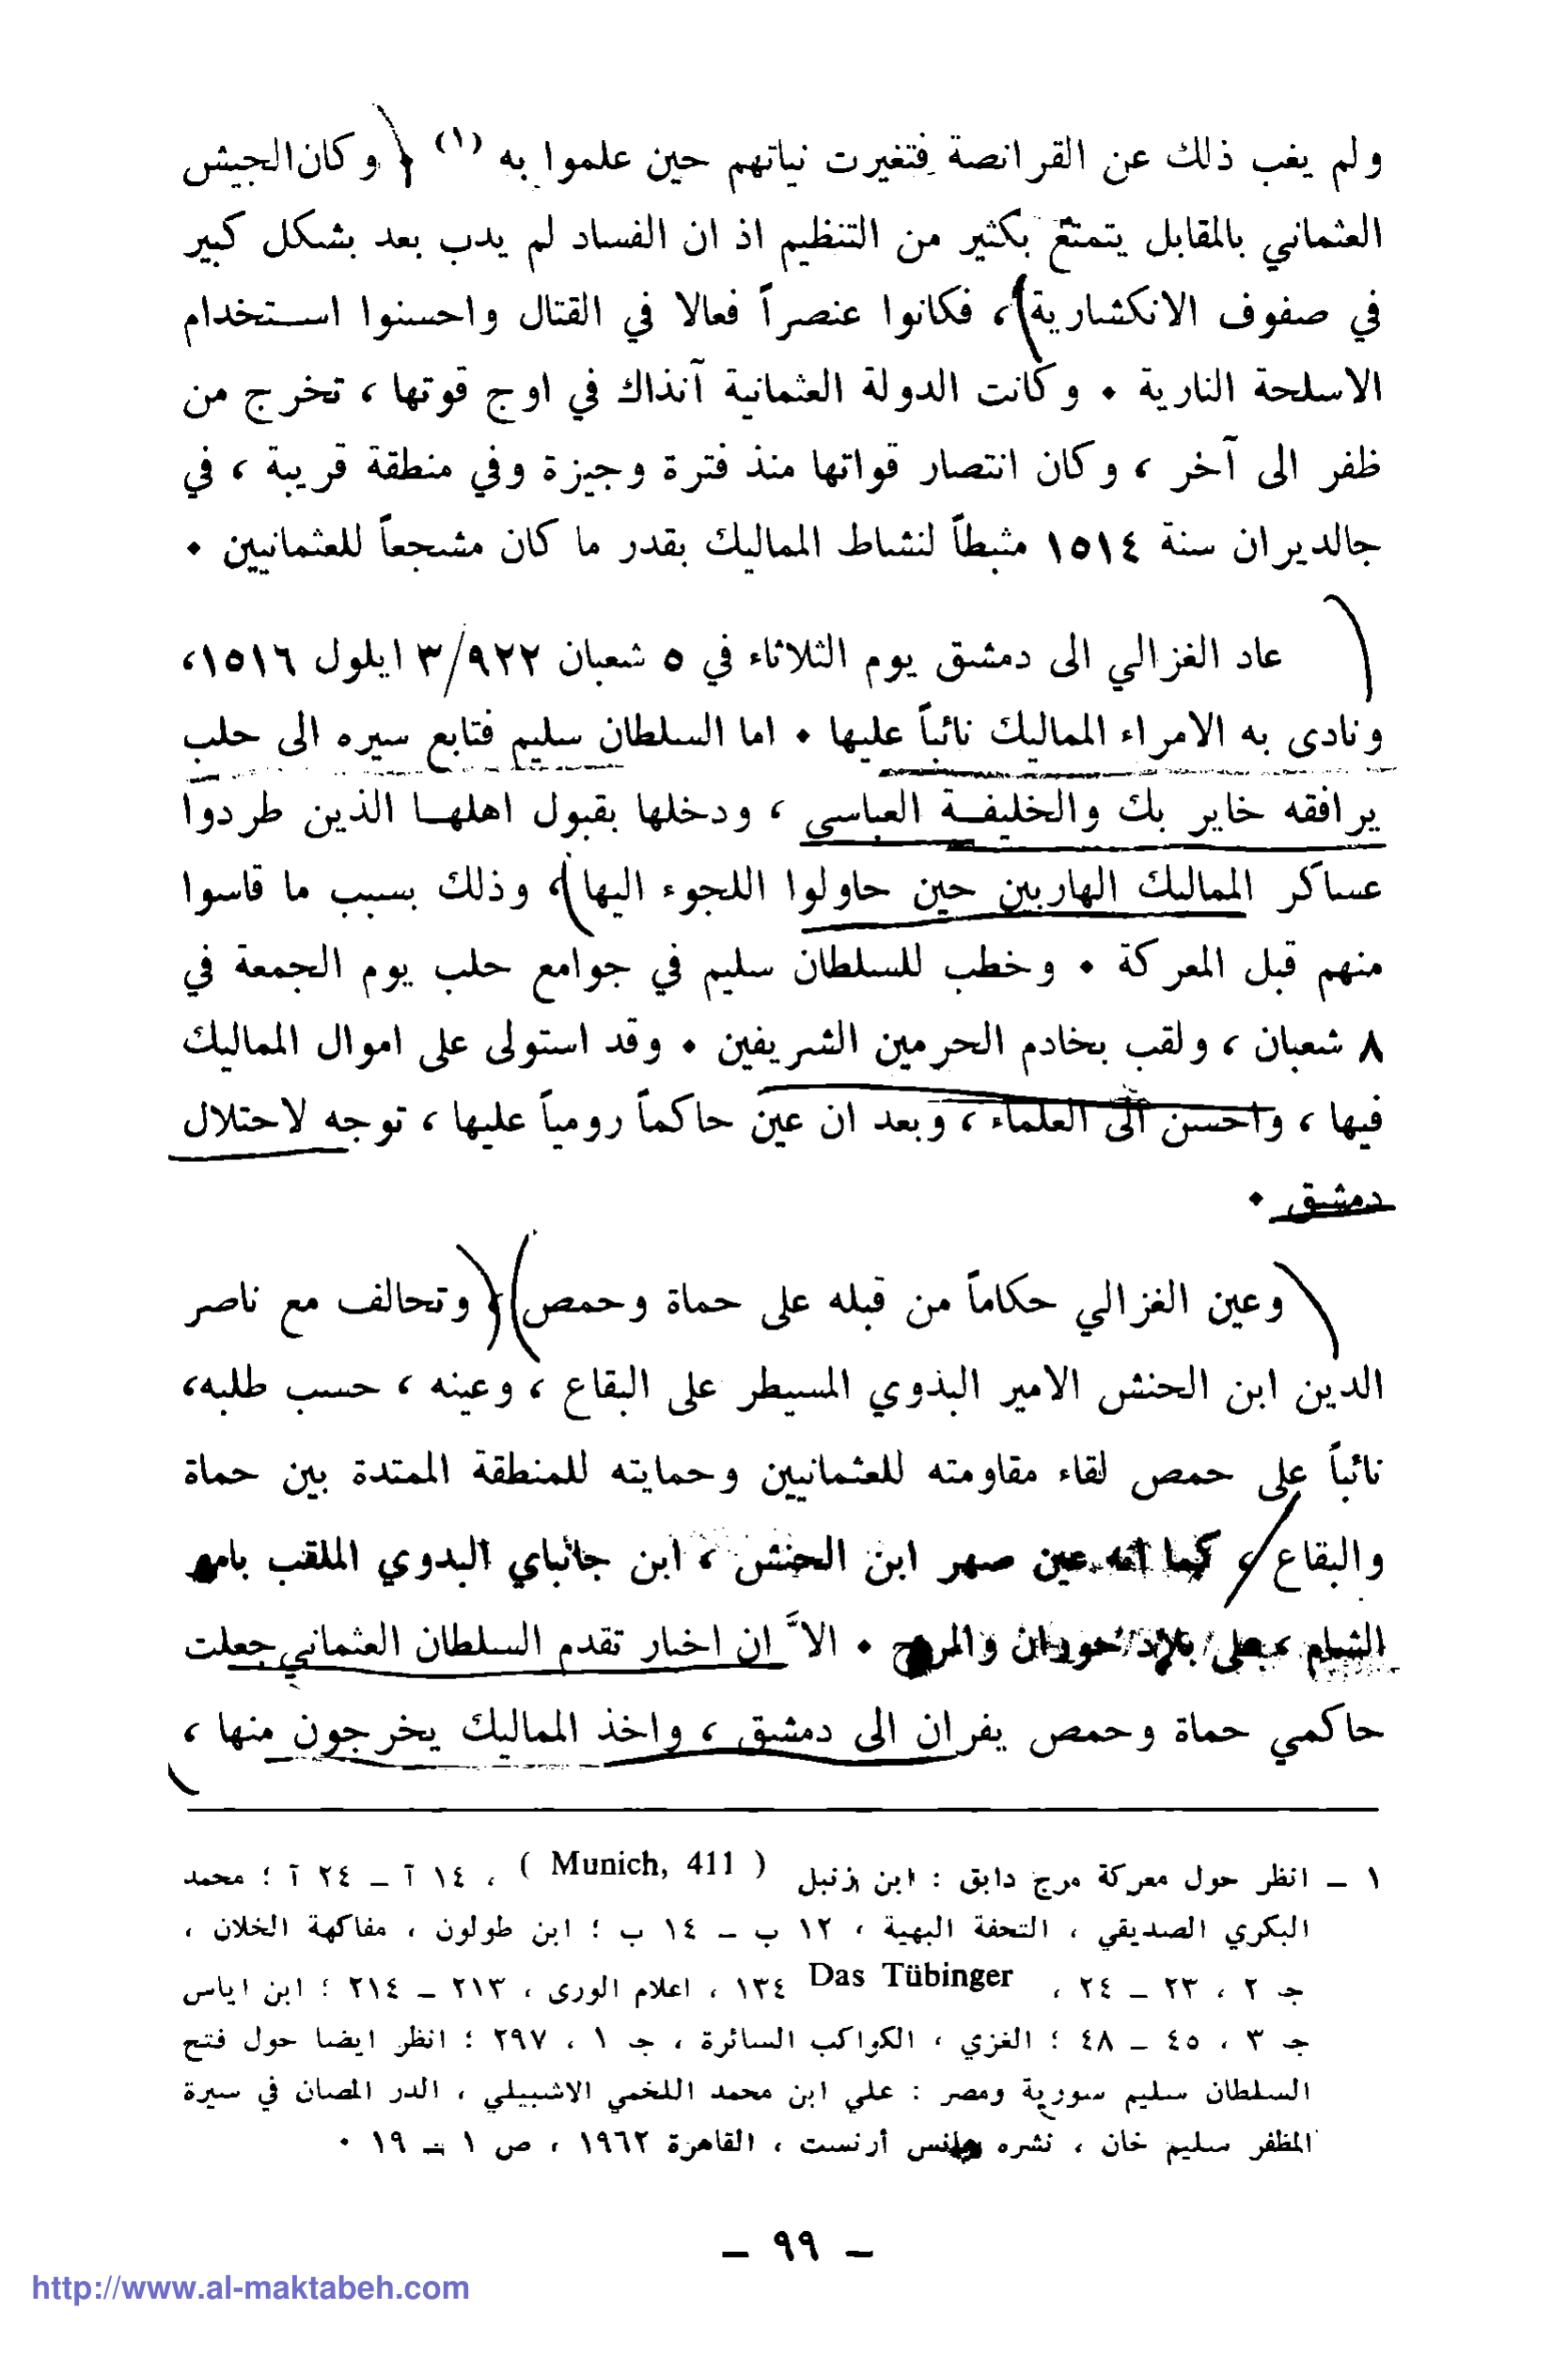 ولم يغب ذلك عن القرانصة فتغيرت نياتهم حين علموا به (١) . وكان الجيش
العثماني بالمقابل يتمتع بكثير من التنظيم اذ ان الفساد لم يدب بعد بشكل كبير
في صفوف الانكشارية ، فكانوا عنصراً فعالا في القتال واحسنوا استخدام
الاسلحة النارية . وكانت الدولة العثمانية آنذاك في اوج قوتها ، تخرج من
ظفر الى آخر ، وكان انتصار قواتها منذ فترة وجيزة وفي منطقة قريبة ، في
جالديران سنة ١٥١٤ مثبطاً لنشاط المماليك بقدر ما كان مشجعاً للعثمانيين .
عاد الغزالي الى دمشق يوم الثلاثاء في ٥ شعبان ٩٢٢/٣ ايلول ١٥١٦،
ونادى به الامراء المماليك نائباً عليها . اما السلطان سليم فتابع سيره الى حلب
يرافقه خاير بك والخليفة العباسي ، ودخلها بقبول اهلها الذين طردوا
عساكر المماليك الهاربين حين حاولوا اللجوء اليها ، وذلك بسبب ما قاسوا
منهم قبل المعركة . وخطب للسلطان سليم في جوامع حلب يوم الجمعة في
٨ شعبان ، ولقب بخادم الحرمين الشريفين . وقد استولى على اموال المماليك
فيها ، واحسن الى العلماء ، وبعد ان عين حاكماً رومياً عليها ، توجه لاحتلال
دمشق .
وعين الغزالي حكاماً من قبله على حماة وحمص . وتحالف مع ناصر
الدين ابن الحنش الامير البدوي المسيطر على البقاع ، وعينه ، حسب طلبه،
نائباً على حمص لقاء مقاومته للعثمانيين وحمايته للمنطقة الممتدة بين حماة
والبقاع ، كما انه عين صهر ابن الحنش ، ابن جانباي البدوي الملقب بامير
الشام ، على بلاد حوران والمرج . الاَّ ان اخبار تقدم السلطان العثماني جعلت
حاكمي حماة وحمص يفران الى دمشق ، واخذ المماليك يخرجون منها ،
١ – انظر حول معركة مرج دابق : ابن زنبل ( Munich, 411 ) ، ١٤ آ – ٢٤ آ ؛ محمد
البكري الصديقي ، التحفة البهية ، ١٢ ب – ١٤ ب ؛ ابن طولون ، مفاكهة الخلان ،
جـ ٢ ، ٢٣ – ٢٤ ، Das Tübinger ١٣٤ ، اعلام الورى ، ٢١٣ – ٢١٤ ؛ ابن اياس
جـ ٣ ، ٤٥ – ٤٨ ؛ الغزي ، الكواكب السائرة ، جـ ١ ، ٢٩٧ ؛ انظر ايضا حول فتح
السلطان سليم سورية ومصر : علي ابن محمد اللخمي الاشبيلي ، الدر المصان في سيرة
المظفر سليم خان ، نشره هانس أرنست ، القاهرة ١٩٦٢ ، ص ١ – ١٩ .
– ٩٩ –
http://www.al-maktabeh.com